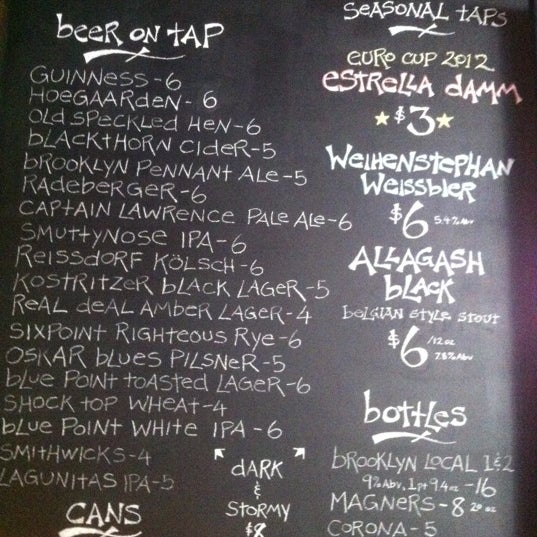 beer on tap
Guinness-6
Hoegaarden-6
Old Speckled Hen-6
Blackthorn Cider-5
Brooklyn Pennant Ale-5
Radeberger-6
Captain Lawrence Pale Ale-6
Smuttynose IPA-6
Reissdorf Kölsch-6
Kostritzer Black Lager-5
Real Deal Amber Lager-4
Sixpoint Righteous Rye-6
Oskar Blues Pilsner-5
Blue Point Toasted Lager-6
Shock Top Wheat-4
Blue Point White IPA-6
Smithwicks-4
Lagunitas IPA-5
CANS
DARK
&
STORMY
$8
Seasonal Taps
Euro Cup 2012
Estrella Damm
$3
Weihenstephan
Weissbier
$6 5.4% ABV
Allagash
Black
Belgian Style Stout
$6 /12 oz
7.8% ABV
bottles
Brooklyn Local 1&2
9% ABV, 1pt 9.4oz-16
Magners-8 20 oz
Corona-5